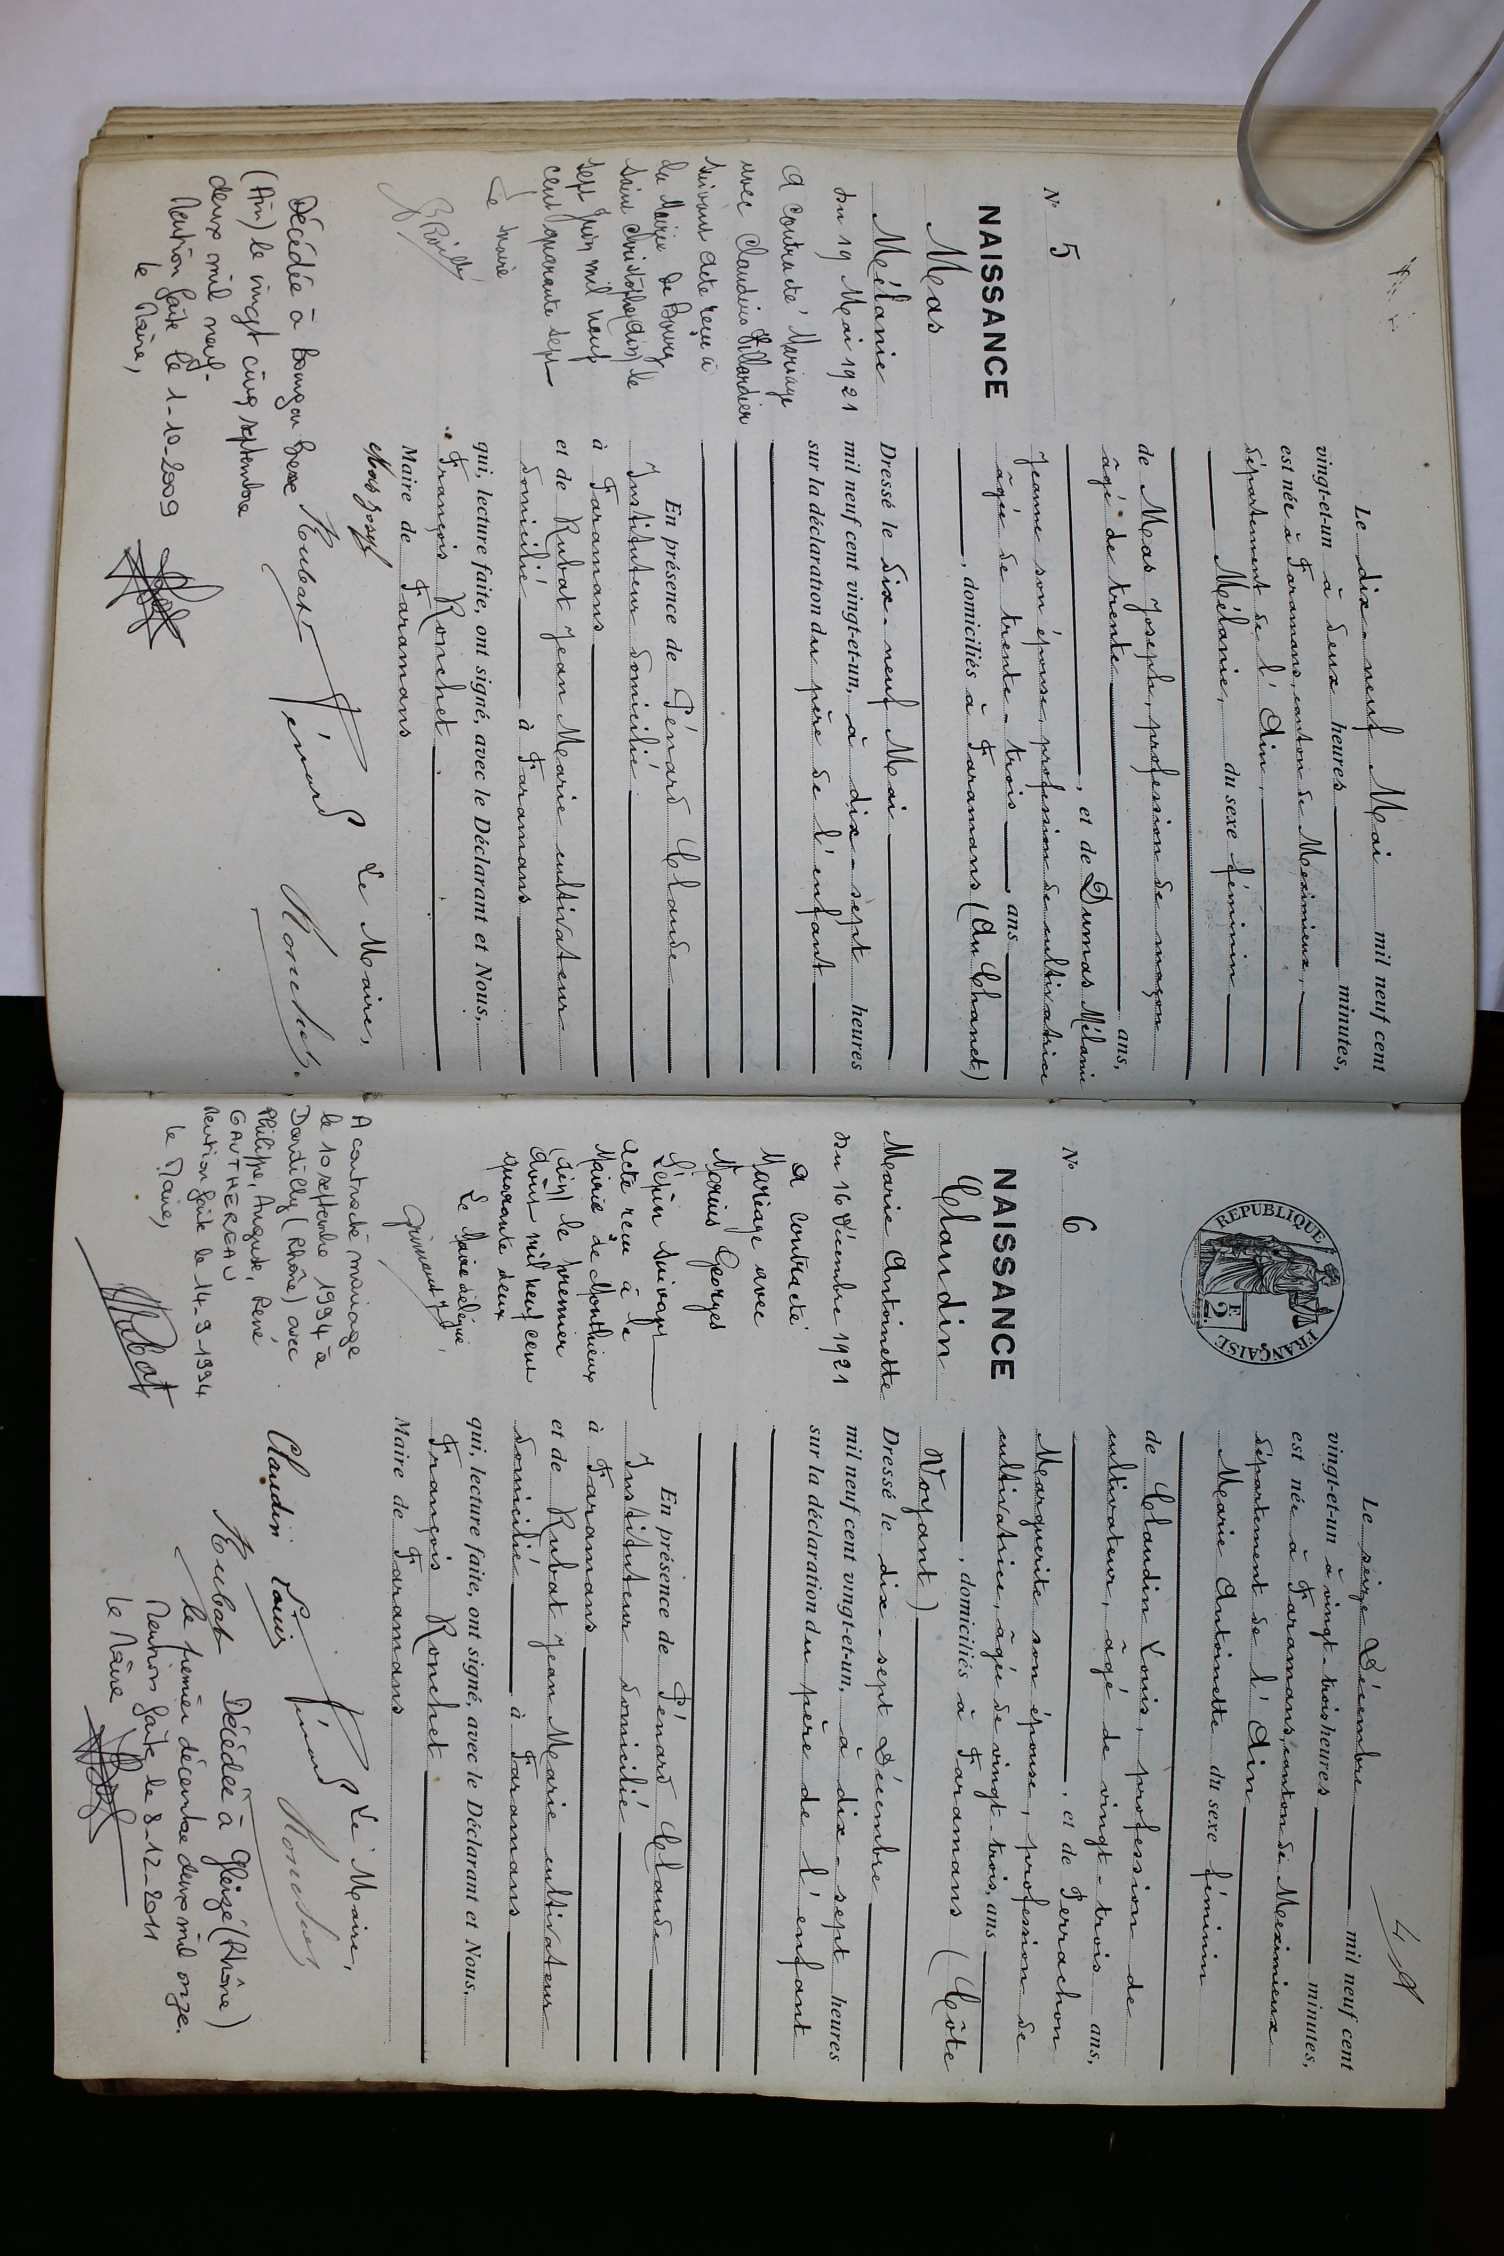 N° 5
NAISSANCE
Mas
Mélanie
du 19 Mai 1921
a contracté Mariage
avec Claudius Villardier
suivant acte reçu à
la Mairie de Bourg
Saint Christophe (Ain) le
sept Juin mil neuf
cent quarante sept
Le Maire
Décédée à Bourg en Bresse
(Ain) le vingt cinq septembre
deux mil neuf.
Mention faite le 1-10-2009
le Maire,
Le dix-neuf Mai mil neuf cent
vingt-et-un à deux heures minutes,
est née à Faramans, canton de Meximieux,
département de l'Ain,
Mélanie, du sexe féminin
de Mas Joseph, profession de maçon
âgé de trente ans,
, et de Dumas Mélanie
Jeanne son épouse, profession de cultivatrice
âgée de trente-trois ans
, domiciliés à Faramans (Au Chanet)
Dressé le dix-neuf Mai
mil neuf cent vingt-et-un, à dix-sept heures
sur la déclaration du père de l'enfant
En présence de Pénard Claude
Instituteur domicilié
à Faramans
et de Rubat Jean Marie cultivateur
domicilié à Faramans
qui, lecture faite, ont signé, avec le Déclarant et Nous,
François Ronchet
Maire de Faramans
Mas Joseph
Le Maire,
Rubat Pénard Ronchet
4
N° 6
NAISSANCE
Claudin
Marie Antoinette
du 16 Décembre 1921
a contracté
Mariage avec
Marius Georges
Lépin suivant
acte reçu à la
Mairie de Monthieux
(Ain) le premier
août mil neuf cent
quarante deux
Le Maire délégué,
A contracté mariage
le 10 septembre 1994 à
Dardilly (Rhône) avec
Philippe, Auguste, René
GAUTHEREAU
Mention faite le 14-9-1994
le Maire,
REPUBLIQUE FRANÇAISE
2 F
Le seize Décembre mil neuf cent
vingt-et-un à vingt-trois heures minutes,
est née à Faramans, canton de Meximieux
département de l'Ain
Marie Antoinette du sexe féminin
de Claudin Louis, profession de
cultivateur, âgé de vingt-trois ans,
, et de Perrachon
Marguerite son épouse, profession de
cultivatrice, âgée de vingt-trois, ans
, domiciliés à Faramans (Côte
Voyant)
Dressé le dix-sept Décembre
mil neuf cent vingt-et-un, à dix-sept heures
sur la déclaration du père de l'enfant
En présence de Pénard Claude
Instituteur domicilié
à Faramans
et de Rubat Jean Marie cultivateur
domicilié à Faramans
qui, lecture faite, ont signé, avec le Déclarant et Nous,
François Ronchet
Maire de Faramans
Le Maire,
Claudin Louis Pénard Ronchet
Rubat
Décédée à Gleizé (Rhône)
le premier décembre deux mil onze.
Mention faite le 8-12-2011
le Maire